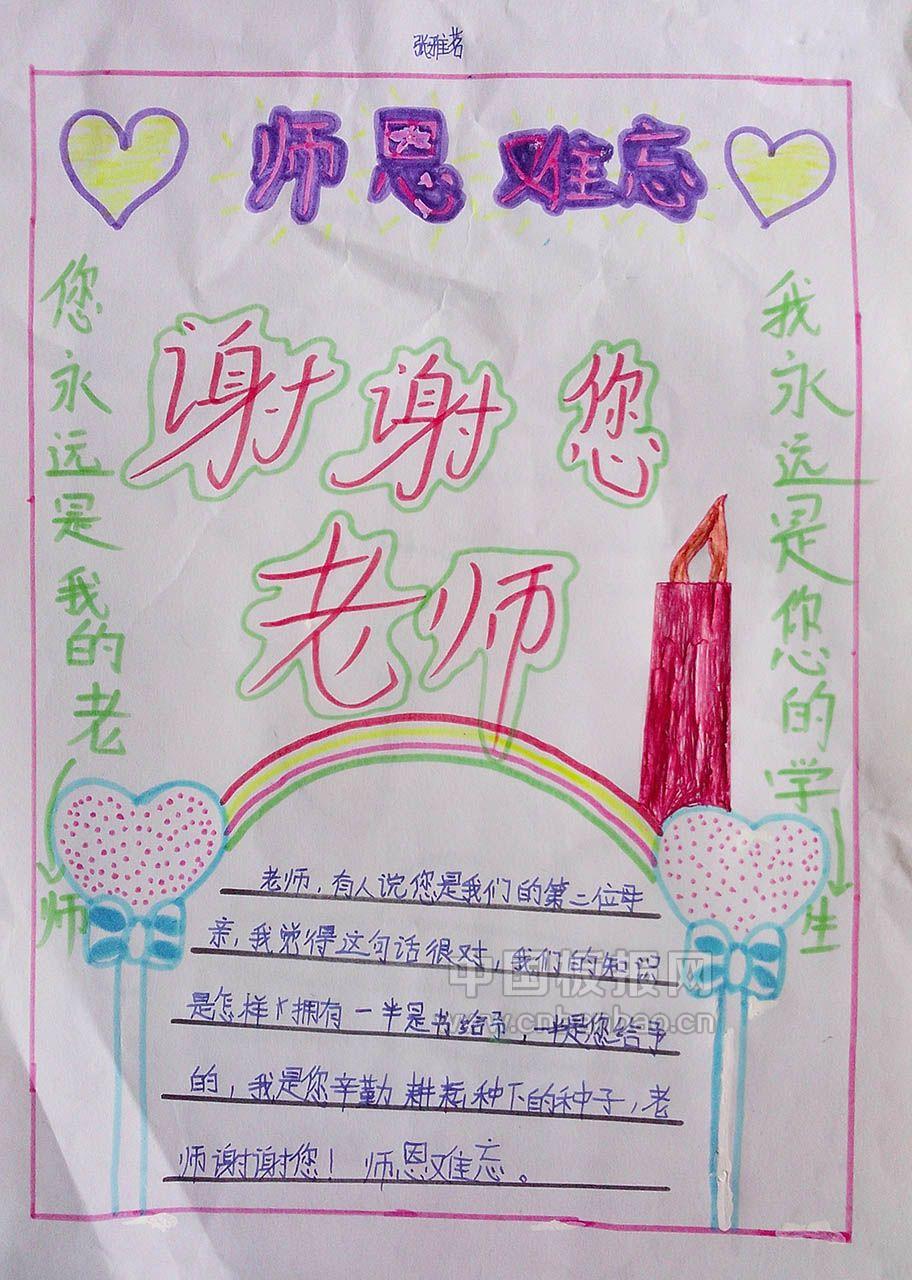 张雅茗
师恩难忘
您永远是我的老师
谢谢您
老师
我永远是您的学生
老师，有人说您是我们的第二位母
亲，我觉得这句话很对，我们的知识
是怎样拥有一半是书给予，一半是您给予
的，我是您辛勤耕耘种下的种子，老
师谢谢您！师恩难忘。
中国板报网
www.cnbanbao.cn